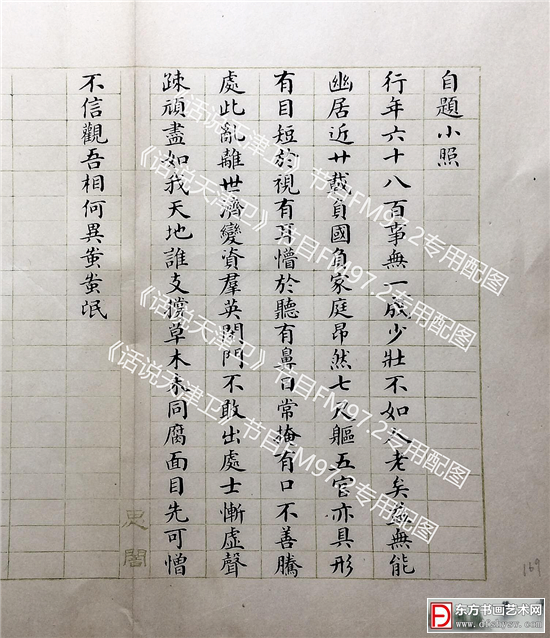 自題小照
行年六十八百事無一成少壯不如人老矣無能
幽居近廿載負國負家庭昂然七尺軀五官亦具形
有目短於視有耳懵於聽有鼻口常掩有口不善騰
處此亂離世濟變資羣英閉門不敢出處士慚虛聲
疎頑盡如我天地誰支撐草木未同腐面目先可憎
不信觀吾相何異蚩蚩氓
閣
169
《话说天津卫》节目FM97.2专用配图
《话说天津卫》节目FM97.2专用配图
《话说天津卫》节目FM97.2专用配图
东方书画艺术网